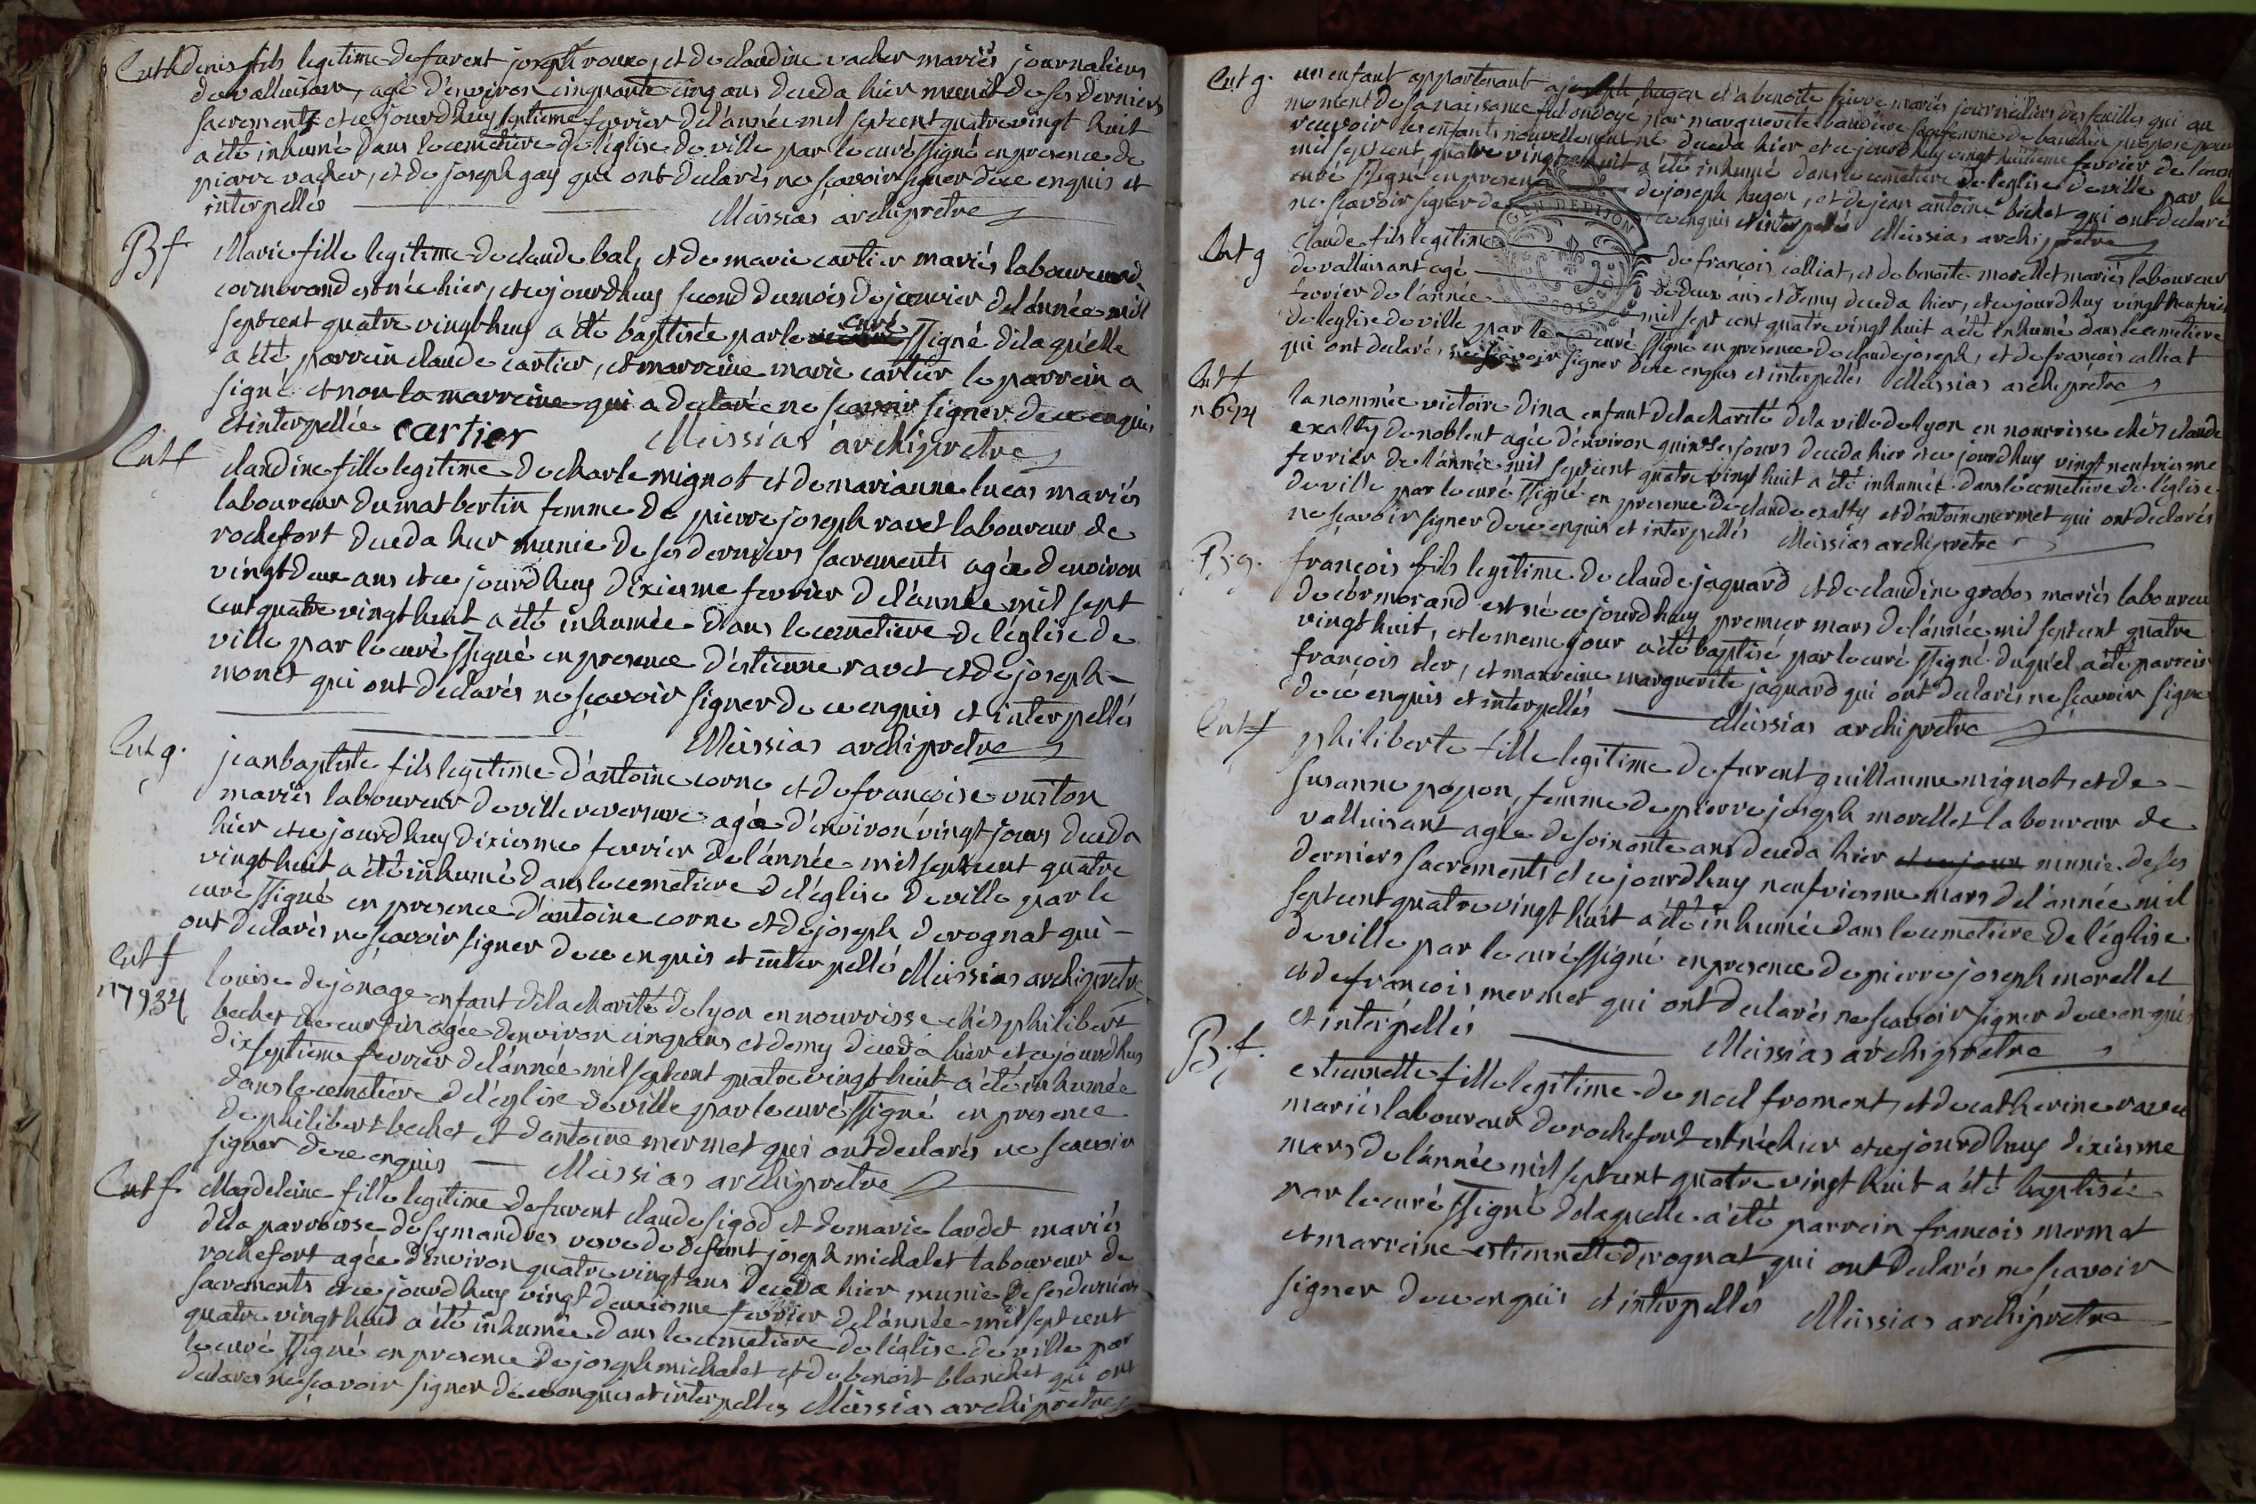 Ent h denis fils legitime de furent joseph roux, et de claudine vacher mariés journaliers
de valluisant, agé d'environ cinquante cinq ans deceda hier munit de ses derniers
sacrements et ce jourdhuy septieme fevrier de l'année mil septcent quatre vingt huit
a été inhumé dans le cemetiere de l'église de ville par le curé ssigné en presence de
pierre vacher, et de joseph gay qui ont declarés ne sçavoir signer de ce enquis et
interpellés Meissias archipretre
B f Marie fille legitime de claude bal, et de marie cartier mariés laboureurs de
cormorand est née hier, et ce jourdhuy second du mois de janvier de l'année mil
septcent quatre vingt huy a été baptisée par le curé ssigné de laquelle
a été parrein claude cartier, et marreine marie cartier le parrein a
signé et non la marreine qui a declarée ne sçavoir signer de ce enquis
et interpellée cartier Meissias archipretre
Ent f claudine fille legitime de charle mignot et de marianne lucas mariés
laboureur du mas bertin femme de pierre joseph ravet laboureur de
rochefort deceda hier munie de ses derniers sacrements agée d'environ
vingt deux ans et ce jourdhuy dixiesme fevrier de l'année mil sept
cent quatre vingt huit a été inhumée dans le cemetiere de l'église de
ville par le curé ssigné en presence d'estienne ravet et de joseph
monet qui ont declarés ne sçavoir signer de ce enquis et interpellés
Meissias archipretre
Ent g. jean baptiste fils legitime d'antoine corne et de françoise vuiton
mariés laboureur de ville reversure agé d'environ vingt jours deceda
hier et ce jourdhuy dixiesme fevrier de l'année mil septcent quatre
vingt huit a été inhumé dans le cemetiere de l'église de ville par le
curé ssigné en presence d'antoine corne et de joseph derognat qui
ont declarés ne sçavoir signer de ce enquis et interpellé Meissias archipretre
Ent f louise de jonage enfant de la charité de lyon en nourrisse chés philibert
n 7934 bechet de curtin agée d'environ cinq ans et demy deceda hier et ce jourdhuy
dixseptieme fevrier de l'année mil septcent quatre vingt huit a été inhumée
dans le cemetiere de l'église de ville par le curé ssigné en presence
de philibert bechet et d'antoine mermet qui ont declarés ne sçavoir
signer de ce enquis Meissias archipretre
Ent f Magdeleine fille legitime de furent claude sigod et de marie lardet mariés
de la parroisse de symandres veuve de defunt joseph michalet laboureur de
rochefort agée d'environ quatre vingt ans deceda hier munie de ses derniers
sacrements et ce jourdhuy vingt deuxiesme fevrier de l'année mil septcent
quatre vingt huit a été inhumée dans le cemetiere de l'église de ville par
le curé ssigné en presence de joseph michalet et de benoit blanchet qui ont
declarés ne sçavoir signer de ce enquis et interpellés Meissias archipretre
Ent g. un enfant appartenant a joseph hugon et a benoite mariés journaliers des feuilles qui au
moment de sa naissance fut ondoyé par marguerite baudiere sagefemme de preposé pour
recevoir les enfants nouvellement né deceda hier et ce jourdhuy vingt huitieme fevrier de l'année
mil septcent quatre vingt huit a été inhumé dans le cemetiere de l'église de ville par le
curé ssigné en presence de joseph hugon, et de jean antoine bechet qui ont declaré
ne sçavoir signer de ce enquis et interpellés Meissias archipretre
GEN DE DIJON
Ent g claude fils legitime de françois calliat, et de benoite morellet mariés laboureur
de valluisant agé de deux ans et demy deceda hier, et ce jourdhuy vingt neufvies
fevrier de l'année mil sept cent quatre vingt huit a été inhumé dans le cemetiere
de l'eglise de ville par le curé ssigné en presence de claude joseph, et de françois calliat
qui ont declarés ne sçavoir signer de ce enquis et interpellés Meissias archipretre
Ent f la nommée victoire dina enfant de la charité de la ville de lyon en nourrisse chés claude
n 694 exalty de noblent agée d'environ quinzes jours deceda hier et ce jourdhuy vingt neufviesme
fevrier de l'année mil septcent quatre vingt huit a été inhumée dans le cemetiere de l'église
de ville par le curé ssigné en presence de claude exalty et d'antoine mermet qui ont declarés
ne sçavoir signer de ce enquis et interpellés Meissias archipretre
B g. françois fils legitime de claude jaquard et de claudine grobos mariés laboureur
de cormorand est né ce jourdhuy premier mars de l'année mil septcent quatre
vingt huit, et le meme jour a été baptisé par le curé ssigné duquel a été parrein
françois cler, et marreine marguerite jaquard qui ont declarés ne sçavoir signer
de ce enquis et interpellés Meissias archipretre
Ent f philiberte fille legitime de furent guillaume mignot, et de
susanne popon, femme de pierre joseph morellet laboureur de
valluisant agée de soixante ans deceda hier et ce jour munie de ses
derniers sacrements et ce jourdhuy neufviesme mars de l'année mil
septcent quatre vingt huit a été inhumée dans le cemetiere de l'église
de ville par le curé ssigné en presence de pierre joseph morellet
et de françois mermet qui ont declarés ne sçavoir signer de ce enquis
et interpellés Meissias archipretre
B. f. estiennette fille legitime de noel froment, et de catherine ravet
mariés laboureur de rochefort est née hier et ce jourdhuy dixiesme
mars de l'année mil septcent quatre vingt huit a été baptisée
par le curé ssigné de laquelle a été parrein françois mermet
et marreine estiennette derognat qui ont declarés ne sçavoir
signer de ce enquis et interpellés Meissias archipretre